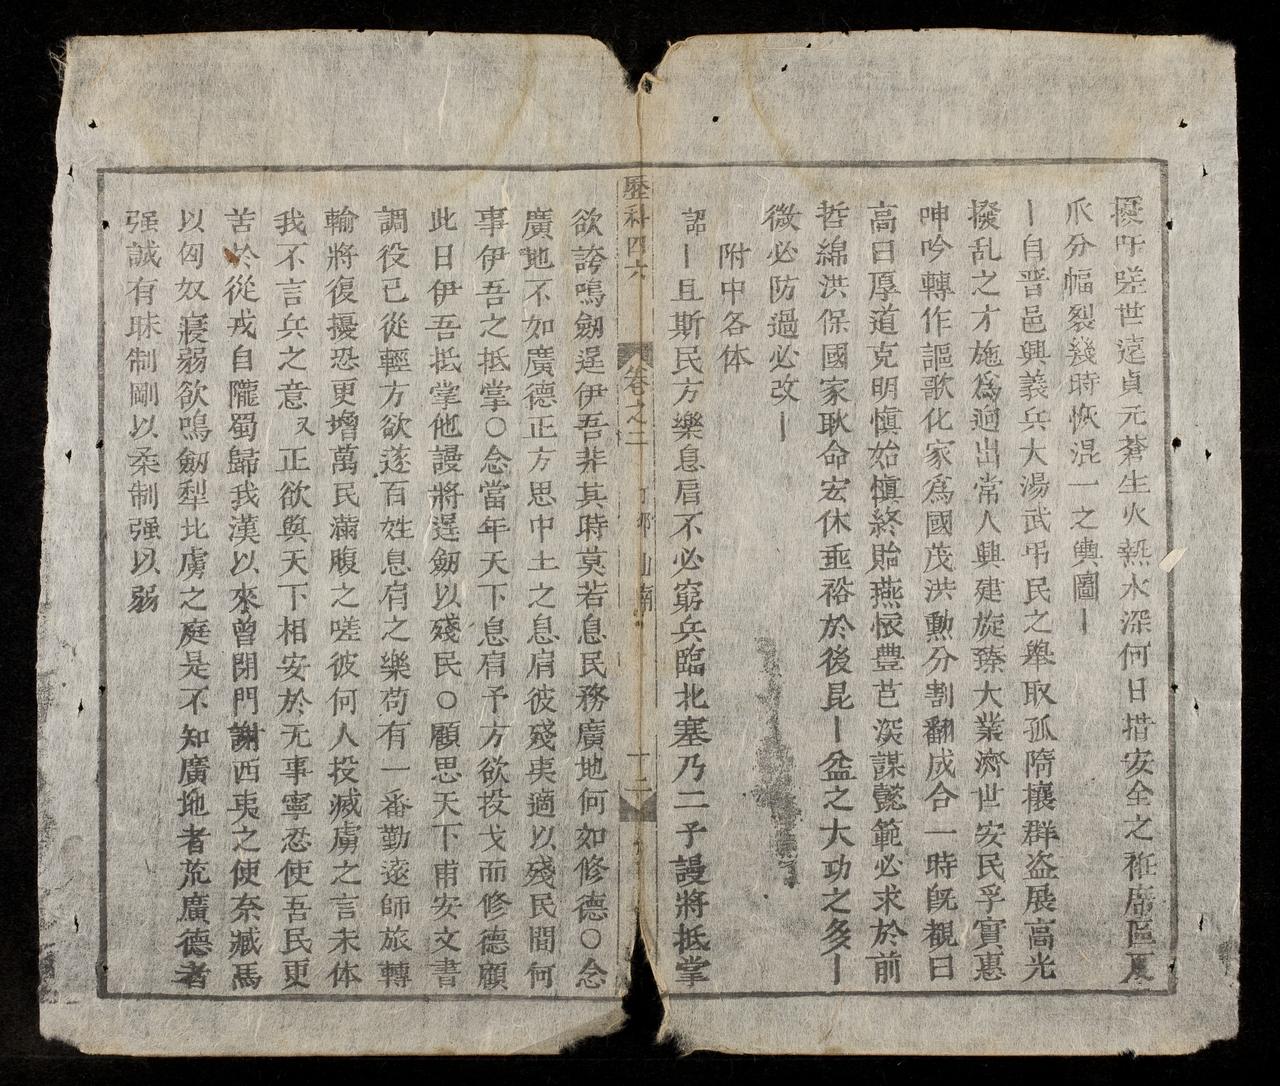 擾吁嗟世遠貞元蒼生火熱水深何日措安全之袵席區夏
瓜分幅裂幾時恢混一之輿圖｜
｜自晋邑興義兵大湯武弔民之舉取孤隋攘群盗展高光
撥乱之才施為逈出常人興建旋臻大業濟世安民孚實惠
呻吟轉作謳歌化家為國茂洪勳分割翻成合一時既観曰
高曰厚道克明慎始慎終貽燕懷豊芑深謀懿範必求於前
哲綿洪保國家耿命宏休垂裕於後昆｜益之大功之多｜
微必防過必改｜
附中各体
歷科四六
卷之二
十二
詔｜且斯民方樂息肩不必窮兵臨北塞乃二予謾將抵掌
欲誇鳴劒逞伊吾非其時莫若息民務廣地何如修德○念
廣地不如廣德正方思中土之息肩彼殘夷適以殘民間何
事伊吾之抵掌○念當年天下息肩予方欲投戈而修德顧
此日伊吾抵掌他謾將逞劒以殘民○顧思天下甫安文書
調役已從輕方欲遂百姓息肩之樂苟有一番勤遠師旅轉
輸將復擾恐更增萬民滿腹之嗟彼何人投滅虜之言未体
我不言兵之意又正欲與天下相安於无事寧忍使吾民更
苦於從戎自隴蜀歸我漢以來曾閉門謝西夷之使奈臧馬
以匈奴寢弱欲鳴劒犁北虜之庭是不知廣地者荒廣德者
强誠有昧制剛以柔制强以弱